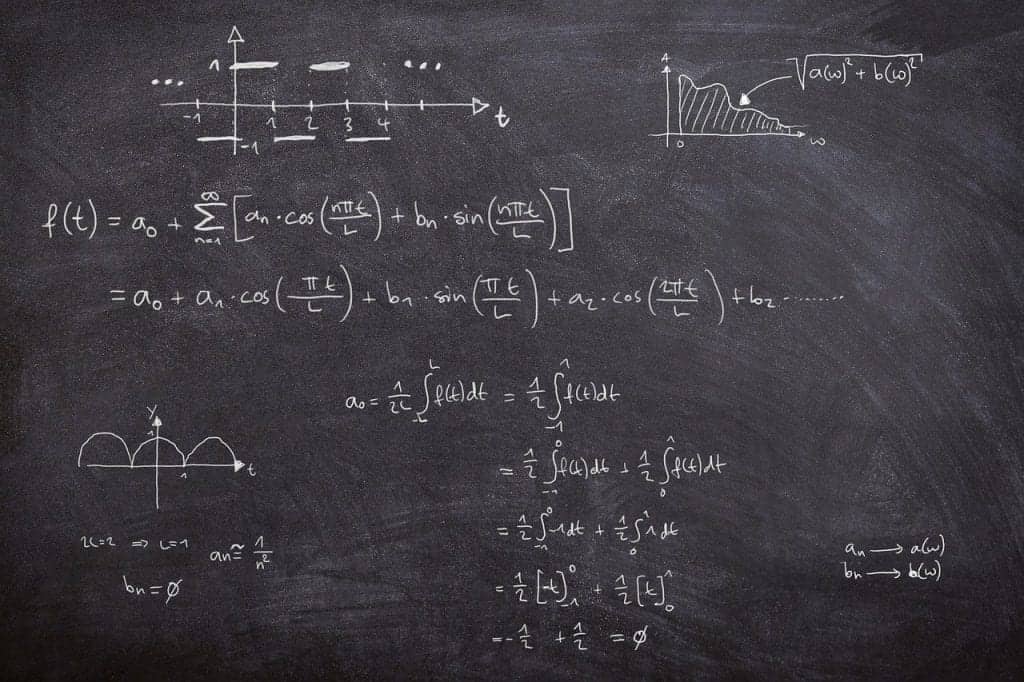 1
... ...
-1 1 2 3 4 t
-1
A
√a(ω)² + b(ω)²
0 ω
f(t) = a₀ + ∞∑n=1 [aₙ · cos(nπt/L) + bₙ · sin(nπt/L)]
= a₀ + a₁ · cos(πt/L) + b₁ · sin(πt/L) + a₂ · cos(2πt/L) + b₂ ........
a₀ = 1/2L ∫-L^L f(t)dt = 1/2 ∫-1^1 f(t)dt
= 1/2 ∫-1^0 f(t)dt + 1/2 ∫0^1 f(t)dt
= 1/2 ∫-1^0 -1dt + 1/2 ∫0^1 1dt
= 1/2 [-t]-1^0 + 1/2 [t]0^1
= -1/2 + 1/2 = Ø
y
1
1 t
2L=2 ⇒ L=1
aₙ ≅ 1/n²
bₙ = Ø
aₙ → a(ω)
bₙ → b(ω)